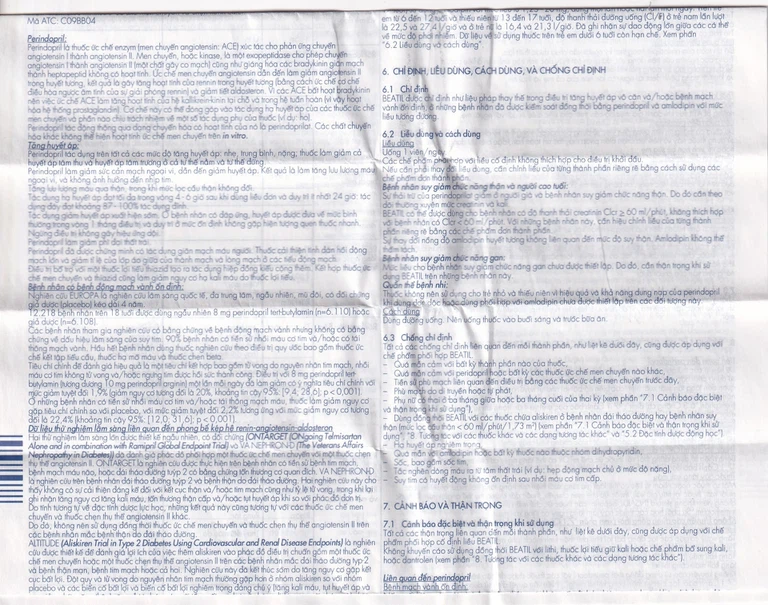 Mã ATC: C09BB04
Perindopril:
Perindopril là thuốc ức chế enzym (men chuyển angiotensin: ACE) xúc tác cho phản ứng chuyển
angiotensin I thành angiotensin II. Men chuyển, hoặc kinase, là một exopeptidase cho phép chuyển
angiotensin I thành angiotensin II (một chất gây co mạch) cũng như giáng hóa các bradykinin giãn mạch
thành heptapeptid không có hoạt tính. Ức chế men chuyển angiotensin dẫn đến làm giảm angiotensin II
trong huyết tương, kết quả là gây tăng hoạt tính của rennin trong huyết tương (bằng cách ức chế cơ chế
điều hòa ngược âm tính của sự giải phóng rennin) và giảm tiết aldosteron. Vì các ACE bất hoạt bradykinin
nên việc ức chế ACE làm tăng hoạt tính của hệ kallikrein-kinin tại chỗ và trong hệ tuần hoàn (vì vậy hoạt
hóa hệ thống prostaglandin). Cơ chế này có thể đóng góp vào tác dụng hạ huyết áp của các thuốc ức chế
men chuyển và phần nào chịu trách nhiệm về một số tác dụng phụ của thuốc (ví dụ: ho).
Perindopril tác động thông qua dạng chuyển hóa có hoạt tính của nó là perindoprilat. Các chất chuyển
hóa khác không thể hiện hoạt tính ức chế men chuyển trên in vitro.
Tăng huyết áp:
Perindopril tác dụng trên tất cả các mức độ tăng huyết áp: nhẹ, trung bình, nặng; thuốc làm giảm cả
huyết áp tâm thu và huyết áp tâm trương ở cả tư thế nằm và tư thế đứng.
Perindopril làm giảm sức cản mạch ngoại vi, dẫn đến giảm huyết áp. Kết quả là làm tăng lưu lượng máu
ngoại vi, và không ảnh hưởng đến nhịp tim.
Tăng lưu lượng máu qua thận, trong khi mức lọc cầu thận không đổi.
Tác dụng hạ huyết áp đạt tối đa trong vòng 4 - 6 giờ sau khi dùng liều đơn và duy trì ít nhất 24 giờ: tác
dụng đáy đạt khoảng 87 - 100% tác dụng đỉnh.
Tác dụng giảm huyết áp xuất hiện sớm. Ở bệnh nhân có đáp ứng, huyết áp được đưa về mức bình
thường trong vòng 1 tháng điều trị và duy trì ở mức ổn định không gặp hiện tượng quen thuốc nhanh.
Ngừng điều trị không gây hiệu ứng dội.
Perindopril làm giảm phì đại thất trái.
Perindopril đã được chứng minh có tác dụng giãn mạch máu người. Thuốc cải thiện tính đàn hồi động
mạch lớn và giảm tỉ lệ của lớp áo giữa của thành mạch và lòng mạch ở các tiểu động mạch.
Điều trị bổ trợ với một thuốc lợi tiểu thiazid tạo ra tác dụng hiệp đồng kiểu cộng thêm. Kết hợp thuốc ức
chế men chuyển và thiazid cũng làm giảm nguy cơ hạ kali máu do thuốc lợi tiểu.
Bệnh nhân có bệnh động mạch vành ổn định:
Nghiên cứu EUROPA là nghiên cứu lâm sàng quốc tế, đa trung tâm, ngẫu nhiên, mù đôi, có đối chứng
giả dược (placebo) kéo dài 4 năm.
12.218 bệnh nhân trên 18 tuổi được dùng ngẫu nhiên 8 mg perindopril tert-butylamin (n=6.110) hoặc
giả dược (n=6.108).
Các bệnh nhân tham gia nghiên cứu có bằng chứng về bệnh động mạch vành nhưng không có bằng
chứng về dấu hiệu lâm sàng của suy tim. 90% bệnh nhân có tiền sử nhồi máu cơ tim và/hoặc có tái
thông mạch vành. Hầu hết bệnh nhân dùng thuốc nghiên cứu theo điều trị quy ước bao gồm thuốc ức
chế kết tập tiểu cầu, thuốc hạ mỡ máu và thuốc chẹn beta.
Tiêu chí chính để đánh giá hiệu quả là một tiêu chí kết hợp bao gồm tử vong do nguyên nhân tim mạch, nhồi
máu cơ tim không tử vong và/hoặc ngưng tim được hồi sức thành công. Điều trị với 8 mg perindopril tert-
butylamin (tương đương 10 mg perindopril arginin) một lần mỗi ngày đã làm giảm có ý nghĩa tiêu chí chính với
mức giảm tuyệt đối 1,9% (giảm nguy cơ tương đối là 20%, khoảng tin cậy 95% [9,4; 28,6]; p < 0,001).
Ở những bệnh nhân có tiền sử nhồi máu cơ tim và/hoặc tái thông mạch, thuốc làm giảm nguy cơ
gặp tiêu chí chính so với placebo, với mức giảm tuyệt đối 2,2% tương ứng với mức giảm nguy cơ tương
đối là 22,4% (khoảng tin cậy 95% [12,0; 31,6]; p < 0,001).
Dữ liệu thử nghiệm lâm sàng liên quan đến phong bế kép hệ renin-angiotensin-aldosteron
Hai thử nghiệm lâm sàng lớn được thiết kế ngẫu nhiên, có đối chứng (ONTARGET (ONgoing Telmisartan
Alone and in combination with Ramipril Global Endpoint Trial) và VA NEPHRON-D (The Veterans Affairs
Nephropathy in Diabetes)) đã đánh giá phác đồ phối hợp một thuốc ức chế men chuyển với một thuốc chẹn
thụ thể angiotensin II. ONTARGET là nghiên cứu được thực hiện trên bệnh nhân có tiền sử bệnh tim mạch,
bệnh mạch máu não, hoặc đái tháo đường tuýp 2 có bằng chứng tổn thương cơ quan đích. VA NEPHRON-D
là nghiên cứu trên bệnh nhân đái tháo đường tuýp 2 và bệnh thận do đái tháo đường. Hai nghiên cứu này cho
thấy không có sự cải thiện đáng kể đối với kết cục thận và/hoặc tim mạch cũng như tỷ lệ tử vong, trong khi lại
ghi nhận tăng nguy cơ tăng kali máu, tổn thương thận cấp và/hoặc tụt huyết áp khi so với phác đồ đơn trị.
Do tính tương tự về đặc tính dược lực học, những kết quả này cũng tương tự với các thuốc ức chế men
chuyển và thuốc chẹn thụ thể angiotensin II khác.
Do đó, không nên sử dụng đồng thời thuốc ức chế men chuyển và thuốc chẹn thụ thể angiotensin II trên
các bệnh nhân mắc bệnh thận do đái tháo đường.
ALTITUDE (Aliskiren Trial in Type 2 Diabetes Using Cardiovascular and Renal Disease Endpoints) là nghiên
cứu được thiết kế để đánh giá lợi ích của việc thêm aliskiren vào phác đồ điều trị chuẩn gồm một thuốc ức
chế men chuyển hoặc một thuốc chẹn thụ thể angiotensin II trên các bệnh nhân mắc đái tháo đường tuýp 2
và bệnh thận mạn, bệnh tim mạch hoặc cả hai. Nghiên cứu này đã kết thúc sớm do tăng nguy cơ gặp kết
cục bất lợi. Đột quỵ và tử vong do nguyên nhân tim mạch thường gặp hơn ở nhóm aliskiren so với nhóm
placebo và các biến cố bất lợi và biến cố bất lợi nghiêm trọng đáng chú ý (tăng kali máu, tụt huyết áp và
em từ 6 đến 12 tuổi và thiếu niên từ 13 đến 17 tuổi, độ thanh thải đường uống (CL/F) ở trẻ nam lần lượt
là 22,5 và 27,4 l/giờ và ở trẻ nữ là 16,4 và 21,3 l/giờ. Đã ghi nhận sự dao động lớn giữa các cá thể
về mức độ phơi nhiễm. Dữ liệu về sử dụng thuốc trên trẻ em dưới 6 tuổi còn hạn chế. Xem phần
"6.2 Liều dùng và cách dùng"
6. CHỈ ĐỊNH, LIỀU DÙNG, CÁCH DÙNG, VÀ CHỐNG CHỈ ĐỊNH
6.1 Chỉ định
BEATIL được chỉ định như liệu pháp thay thế trong điều trị tăng huyết áp vô căn và/hoặc bệnh mạch
vành ổn định ở những bệnh nhân đã được kiểm soát đồng thời bằng perindopril và amlodipin với mức
liều tương đương.
6.2 Liều dùng và cách dùng
Liều dùng
Uống 1 viên/ngày.
Các chế phẩm phối hợp với liều cố định không thích hợp cho điều trị khởi đầu.
Nếu cần phải thay đổi liều dùng, cần chỉnh liều của từng thành phần riêng rẽ bằng cách sử dụng các
chế phẩm đơn thành phần.
Bệnh nhân suy giảm chức năng thận và người cao tuổi:
Sự thải trừ của perindoprilat giảm ở người già và bệnh nhân suy giảm chức năng thận. Do đó cần theo
dõi thường xuyên mức creatinin và kali.
BEATIL có thể được dùng cho bệnh nhân có độ thanh thải creatinin Clcr ≥ 60 ml/phút, không thích hợp
với bệnh nhân có Clcr < 60 ml/phút. Với những bệnh nhân này, cần hiệu chỉnh liều của từng thành
phần riêng rẽ bằng các chế phẩm đơn thành phần.
Sự thay đổi nồng độ amlodipin huyết tương không liên quan đến mức độ suy thận. Amlodipin không thể
thẩm tách.
Bệnh nhân suy giảm chức năng gan:
Mức liều cho bệnh nhân suy giảm chức năng gan chưa được thiết lập. Do đó, cần thận trọng khi sử
dụng BEATIL trên những bệnh nhân này.
Quần thể bệnh nhi:
Thuốc không nên sử dụng cho trẻ nhỏ và thiếu niên vì hiệu quả và khả năng dung nạp của perindopril
khi dùng đơn độc hoặc dùng phối hợp với amlodipin chưa được thiết lập trên các đối tượng này.
Cách dùng
Dùng đường uống. Nên uống thuốc vào buổi sáng và trước bữa ăn.
6.3 Chống chỉ định
Tất cả các chống chỉ định liên quan đến mỗi thành phần, như liệt kê dưới đây, cũng được áp dụng với
chế phẩm phối hợp BEATIL.
- Quá mẫn cảm với bất kỳ thành phần nào của thuốc,
- Quá mẫn cảm với perindopril hoặc bất kỳ các thuốc ức chế men chuyển nào khác,
- Tiền sử phù mạch liên quan đến điều trị bằng các thuốc ức chế men chuyển trước đây,
- Phù mạch do di truyền hoặc tự phát,
- Phụ nữ có thai ở ba tháng giữa hoặc ba tháng cuối của thai kỳ (xem phần "7.1 Cảnh báo đặc biệt
và thận trọng khi sử dụng"),
- Dùng đồng thời BEATIL với các thuốc chứa aliskiren ở bệnh nhân đái tháo đường hay bệnh nhân suy
thận (mức lọc cầu thận < 60 ml/phút/1,73 m²) (xem phần "7.1 Cảnh báo đặc biệt và thận trọng khi sử
dụng", "8. Tương tác với các thuốc khác và các dạng tương tác khác" và "5.2 Đặc tính dược động học").
- Hạ huyết áp nghiêm trọng,
- Quá mẫn với amlodipin hoặc bất kỳ thuốc nào thuộc nhóm dihydropyridin,
- Sốc, bao gồm sốc tim,
- Tắc nghẽn dòng máu ra từ tâm thất trái (ví dụ: hẹp động mạch chủ ở mức độ nặng),
- Suy tim có huyết động không ổn định sau nhồi máu cơ tim cấp.
7. CẢNH BÁO VÀ THẬN TRỌNG
7.1 Cảnh báo đặc biệt và thận trọng khi sử dụng
Tất cả các thận trọng liên quan đến mỗi thành phần, như liệt kê dưới đây, cũng được áp dụng với chế
phẩm phối hợp cố định liều BEATIL.
Không khuyến cáo sử dụng đồng thời BEATIL với lithi, thuốc lợi tiểu giữ kali hoặc chế phẩm bổ sung kali,
hoặc dantrolen (xem phần "8. Tương tác với các thuốc khác và các dạng tương tác khác").
Liên quan đến perindopril
Bệnh mạch vành ổn định: